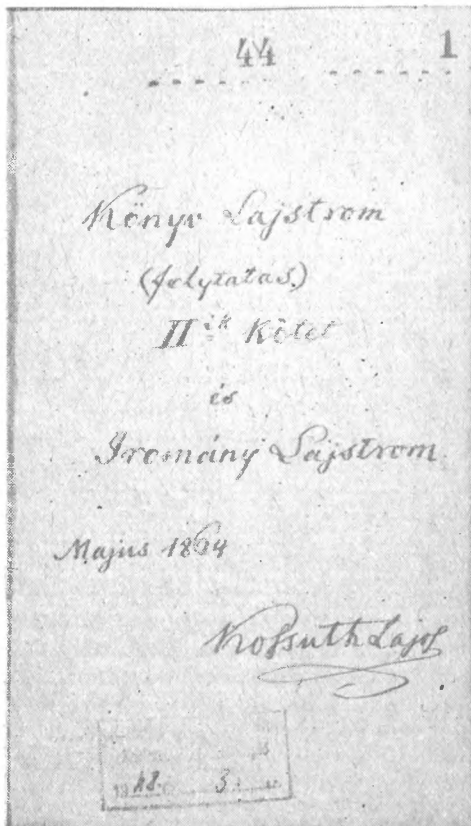 44 1
Könyv Lajstrom
(folytatas.)
II ik Kötet
és
Iromány Lajstrom
Majus 1864
Kossuth Lajos
1948. 3